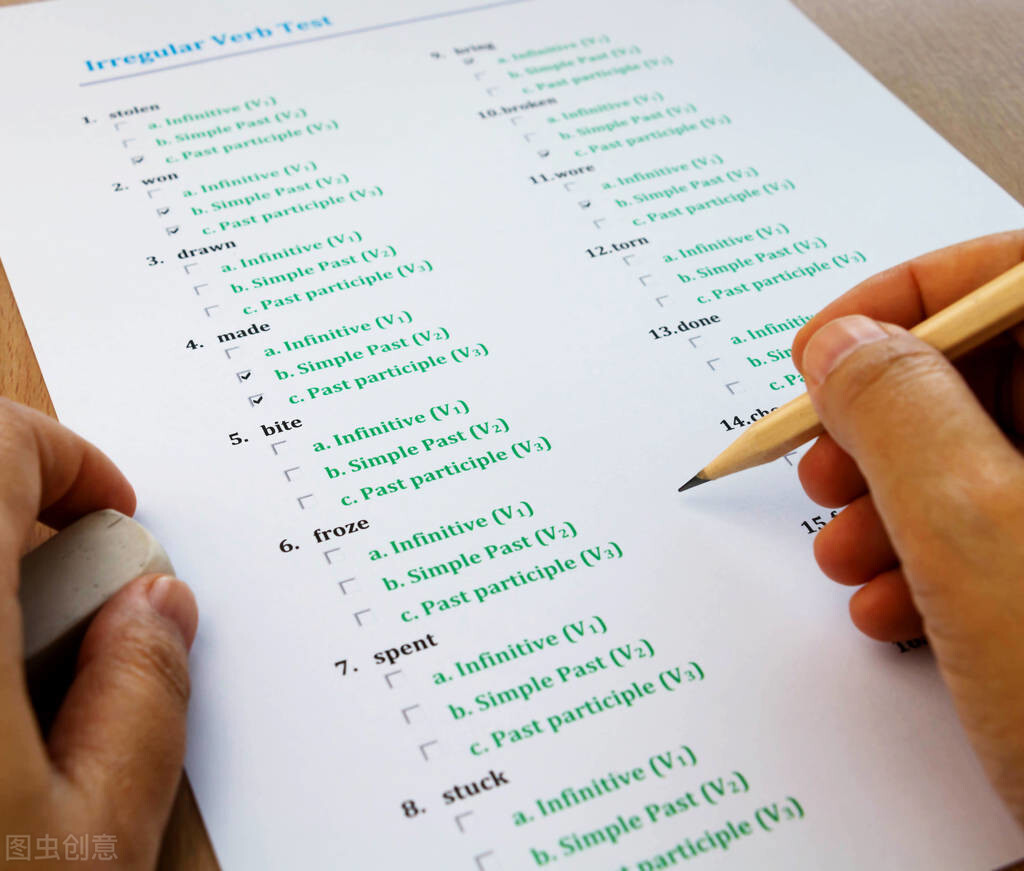 Irregular Verb Test
1. stolen
a. Infinitive (V1)
b. Simple Past (V2)
c. Past participle (V3)
2. won
a. Infinitive (V1)
b. Simple Past (V2)
c. Past participle (V3)
3. drawn
a. Infinitive (V1)
b. Simple Past (V2)
c. Past participle (V3)
4. made
a. Infinitive (V1)
b. Simple Past (V2)
c. Past participle (V3)
5. bite
a. Infinitive (V1)
b. Simple Past (V2)
c. Past participle (V3)
6. froze
a. Infinitive (V1)
b. Simple Past (V2)
c. Past participle (V3)
7. spent
a. Infinitive (V1)
b. Simple Past (V2)
c. Past participle (V3)
8. stuck
a. Infinitive (V1)
b. Simple Past (V2)
participle (V3)
9. bring
a. Infinitive (V1)
b. Simple Past (V2)
c. Past participle (V3)
10.broken
a. Infinitive (V1)
b. Simple Past (V2)
c. Past participle (V3)
11.wore
a. Infinitive (V1)
b. Simple Past (V2)
c. Past participle (V3)
12.torn
a. Infinitive (V1)
b. Simple Past (V2)
c. Past participle (V3)
13.done
a.
b.
c.
14.
15.
图虫创意